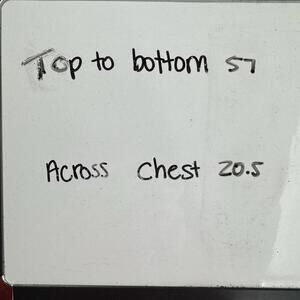 Top to bottom 57
Across Chest 20.5